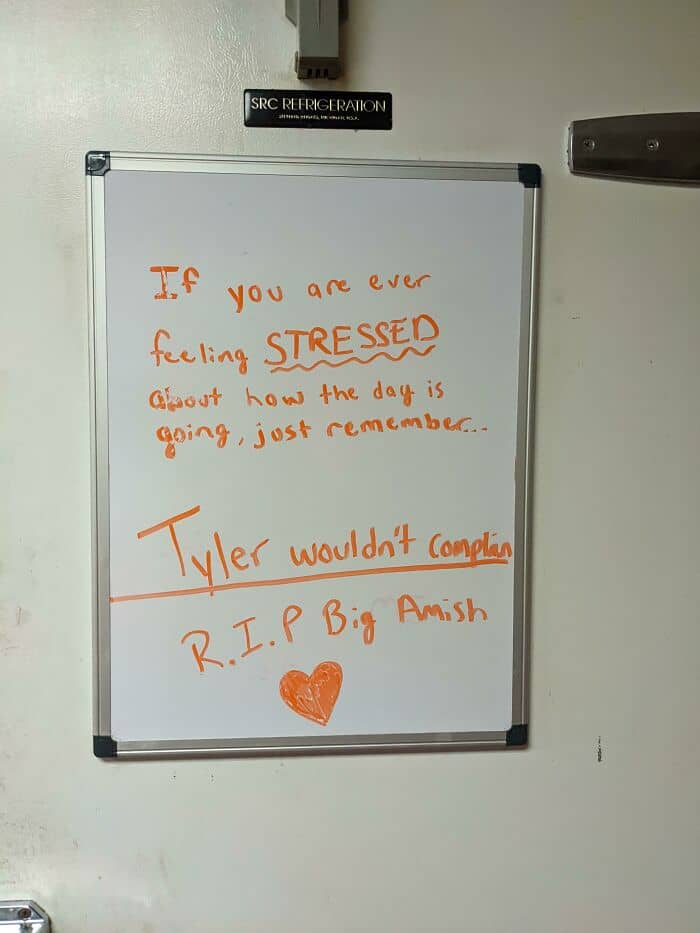 SRC REFRIGERATION
If you are ever
feeling STRESSED
about how the day is
going, just remember...
Tyler wouldn't complain
R.I.P Big Amish